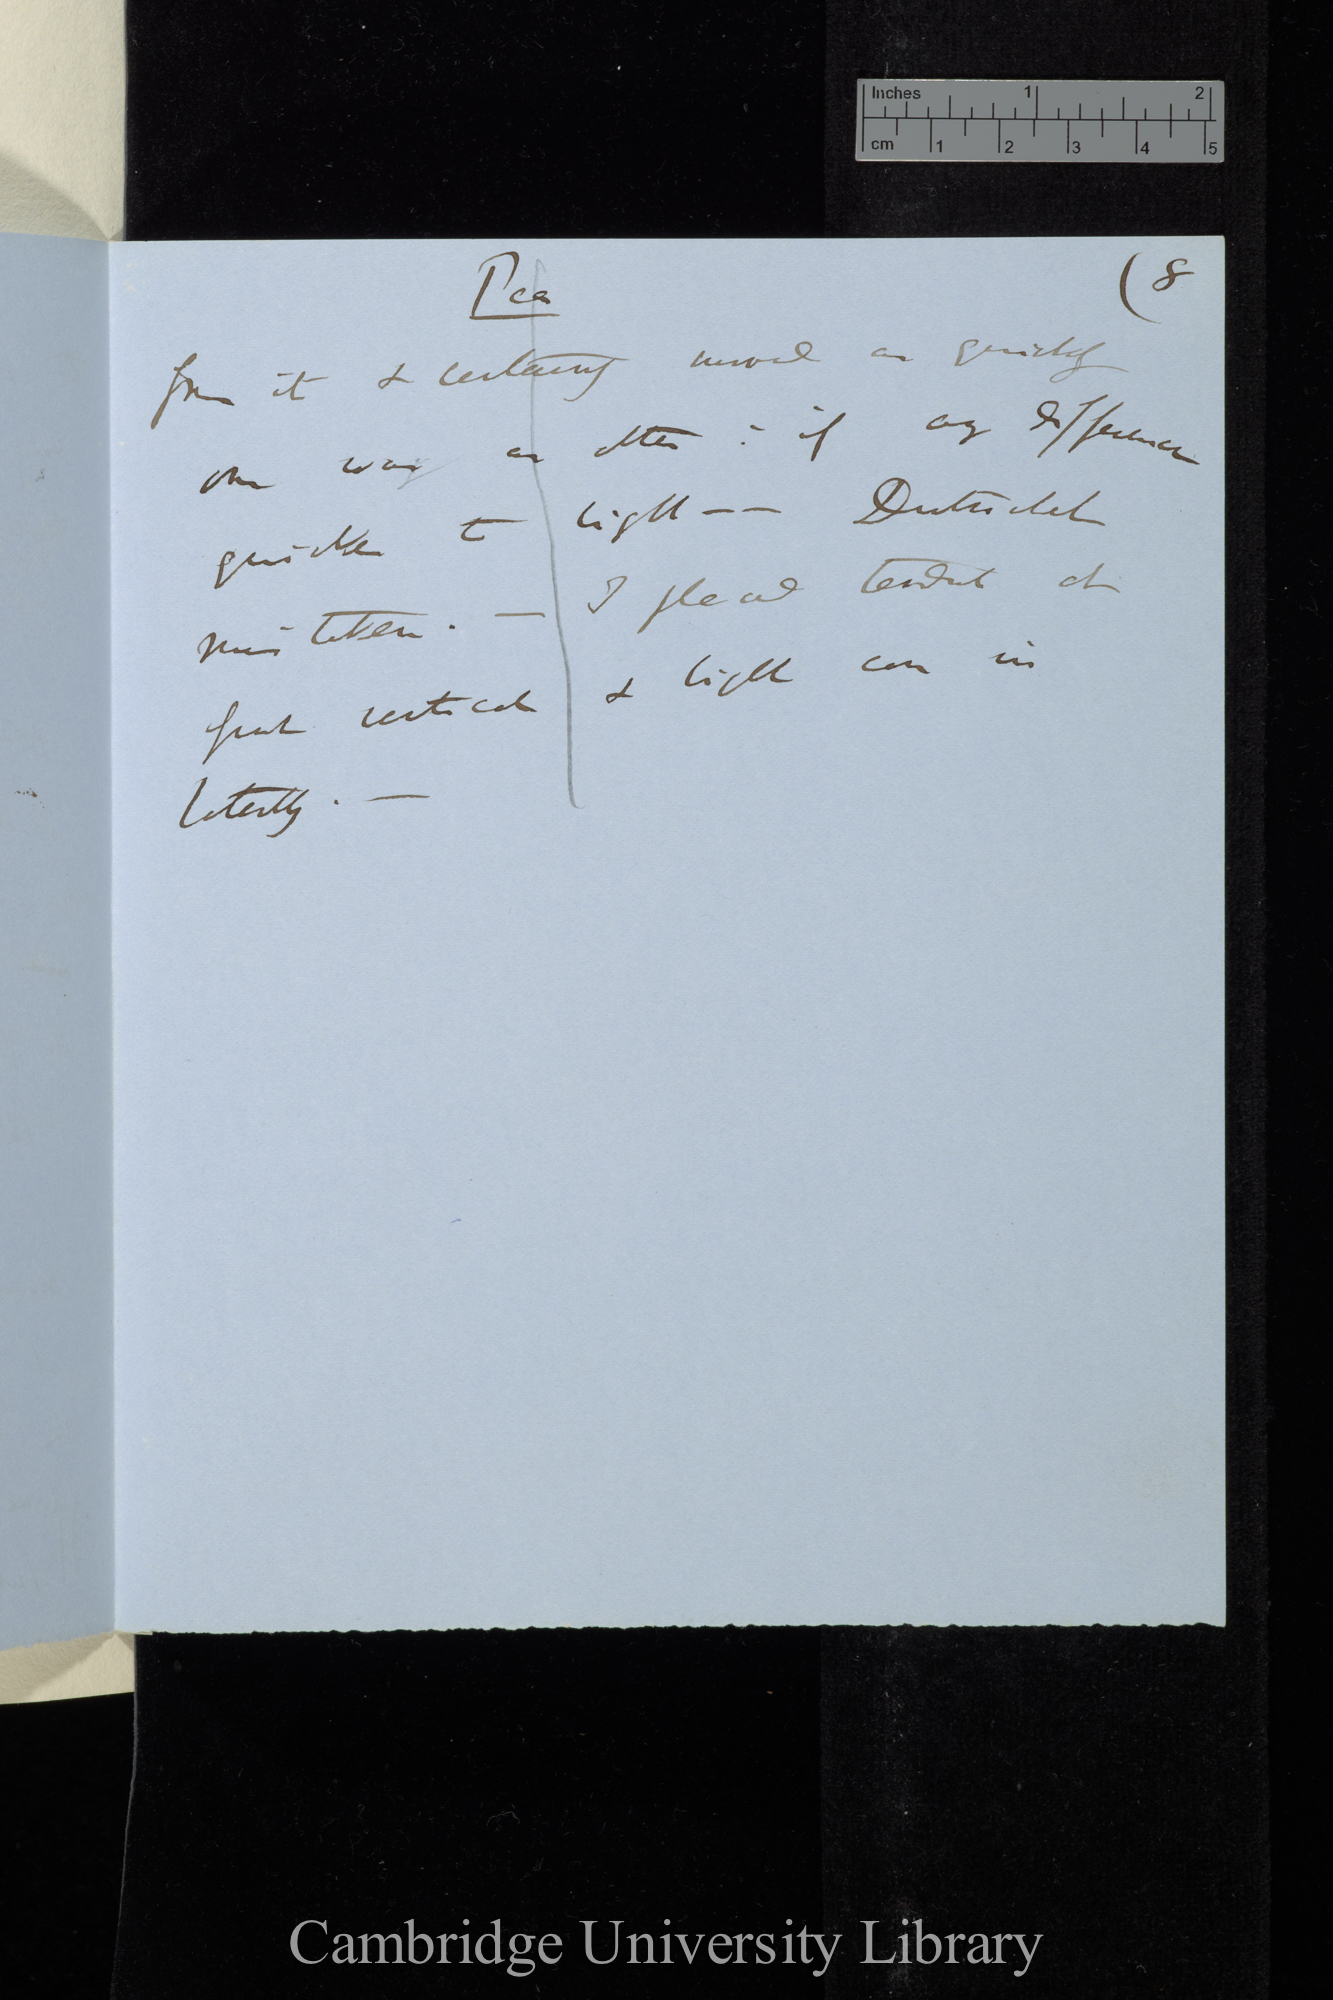 Inches 1 2
cm 1 2 3 4 5
Pea (8
from it & certainly moved as quickly
one way as other : if any difference
quicker to light —— Dutrochet
mistaken. — I placed tendril at
first vertical & light came in
laterally. —
Cambridge University Library